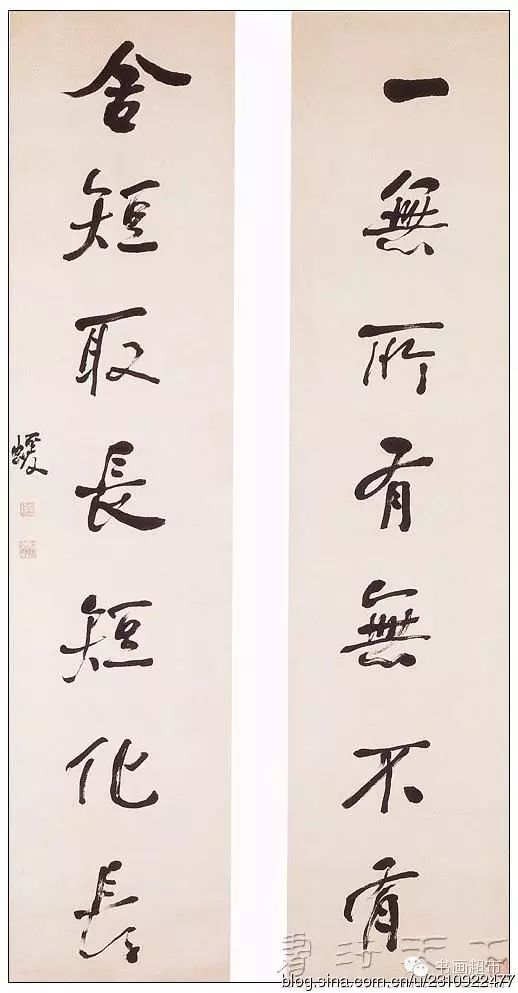 一無所有無不有
舍短取長短化長
蝯叟
書法天下
书画超市
blog.sina.com.cn/u/2310922477